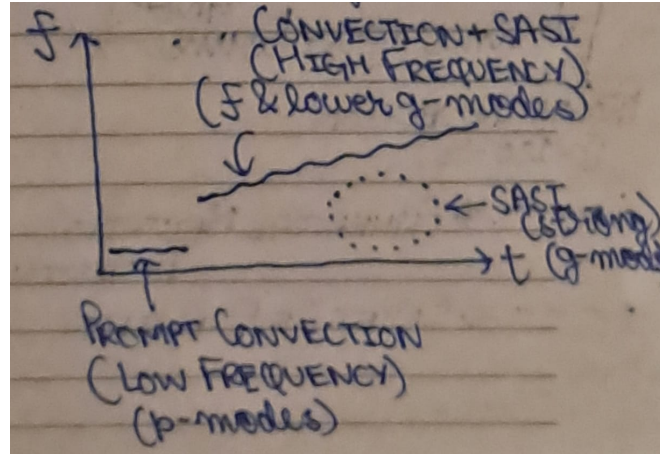 f
CONVECTION + SASI
(HIGH FREQUENCY)
(f & lower g-modes)
SASI
(strong)
t
(g-mod
PROMPT CONVECTION
(LOW FREQUENCY)
(p-modes)